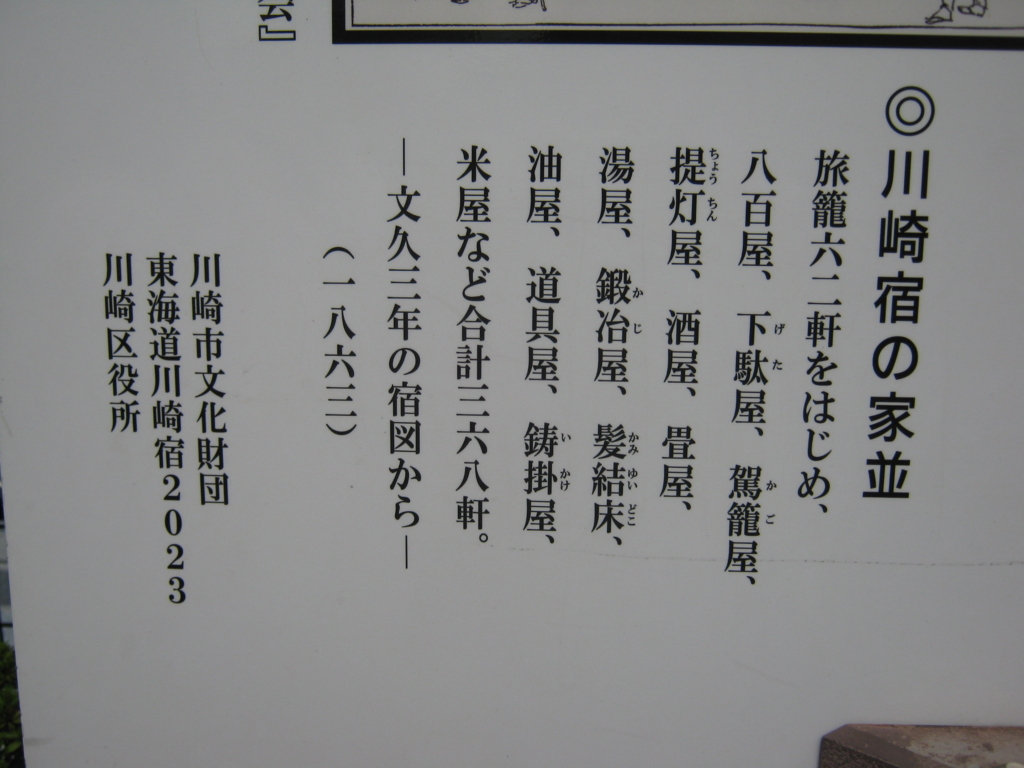 ◎川崎宿の家並
旅籠六二軒をはじめ、
八百屋、下駄屋、駕籠屋、
提灯屋、酒屋、畳屋、
湯屋、鍛冶屋、髪結床、
油屋、道具屋、鋳掛屋、
米屋など合計三六八軒。
―文久三年の宿図から―
(一八六三)
川崎市文化財団
東海道川崎宿2023
川崎区役所
会』